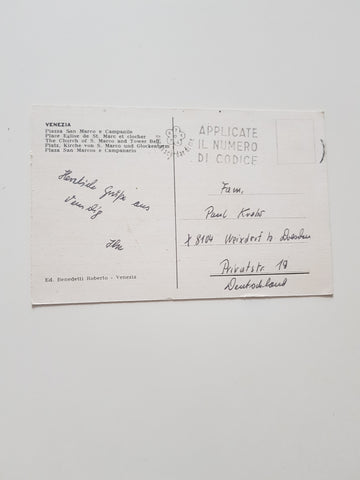 VENEZIA
Piazza San Marco e Campanile
Place Eglise de St. Marc et clocher
The Church of S. Marco and Tower Bell
Platz, Kirche von S. Marco und Glockenturm
Plaza San Marcos e Campanario
APPLICATE
IL NUMERO
DI CODICE
Herzliche Grüße aus
Venedig
Fam.
Paul
X 8104 Weixdorf b Dresden
Privatstr 17
Deutschland
Ed. Benedetti Roberto - Venezia